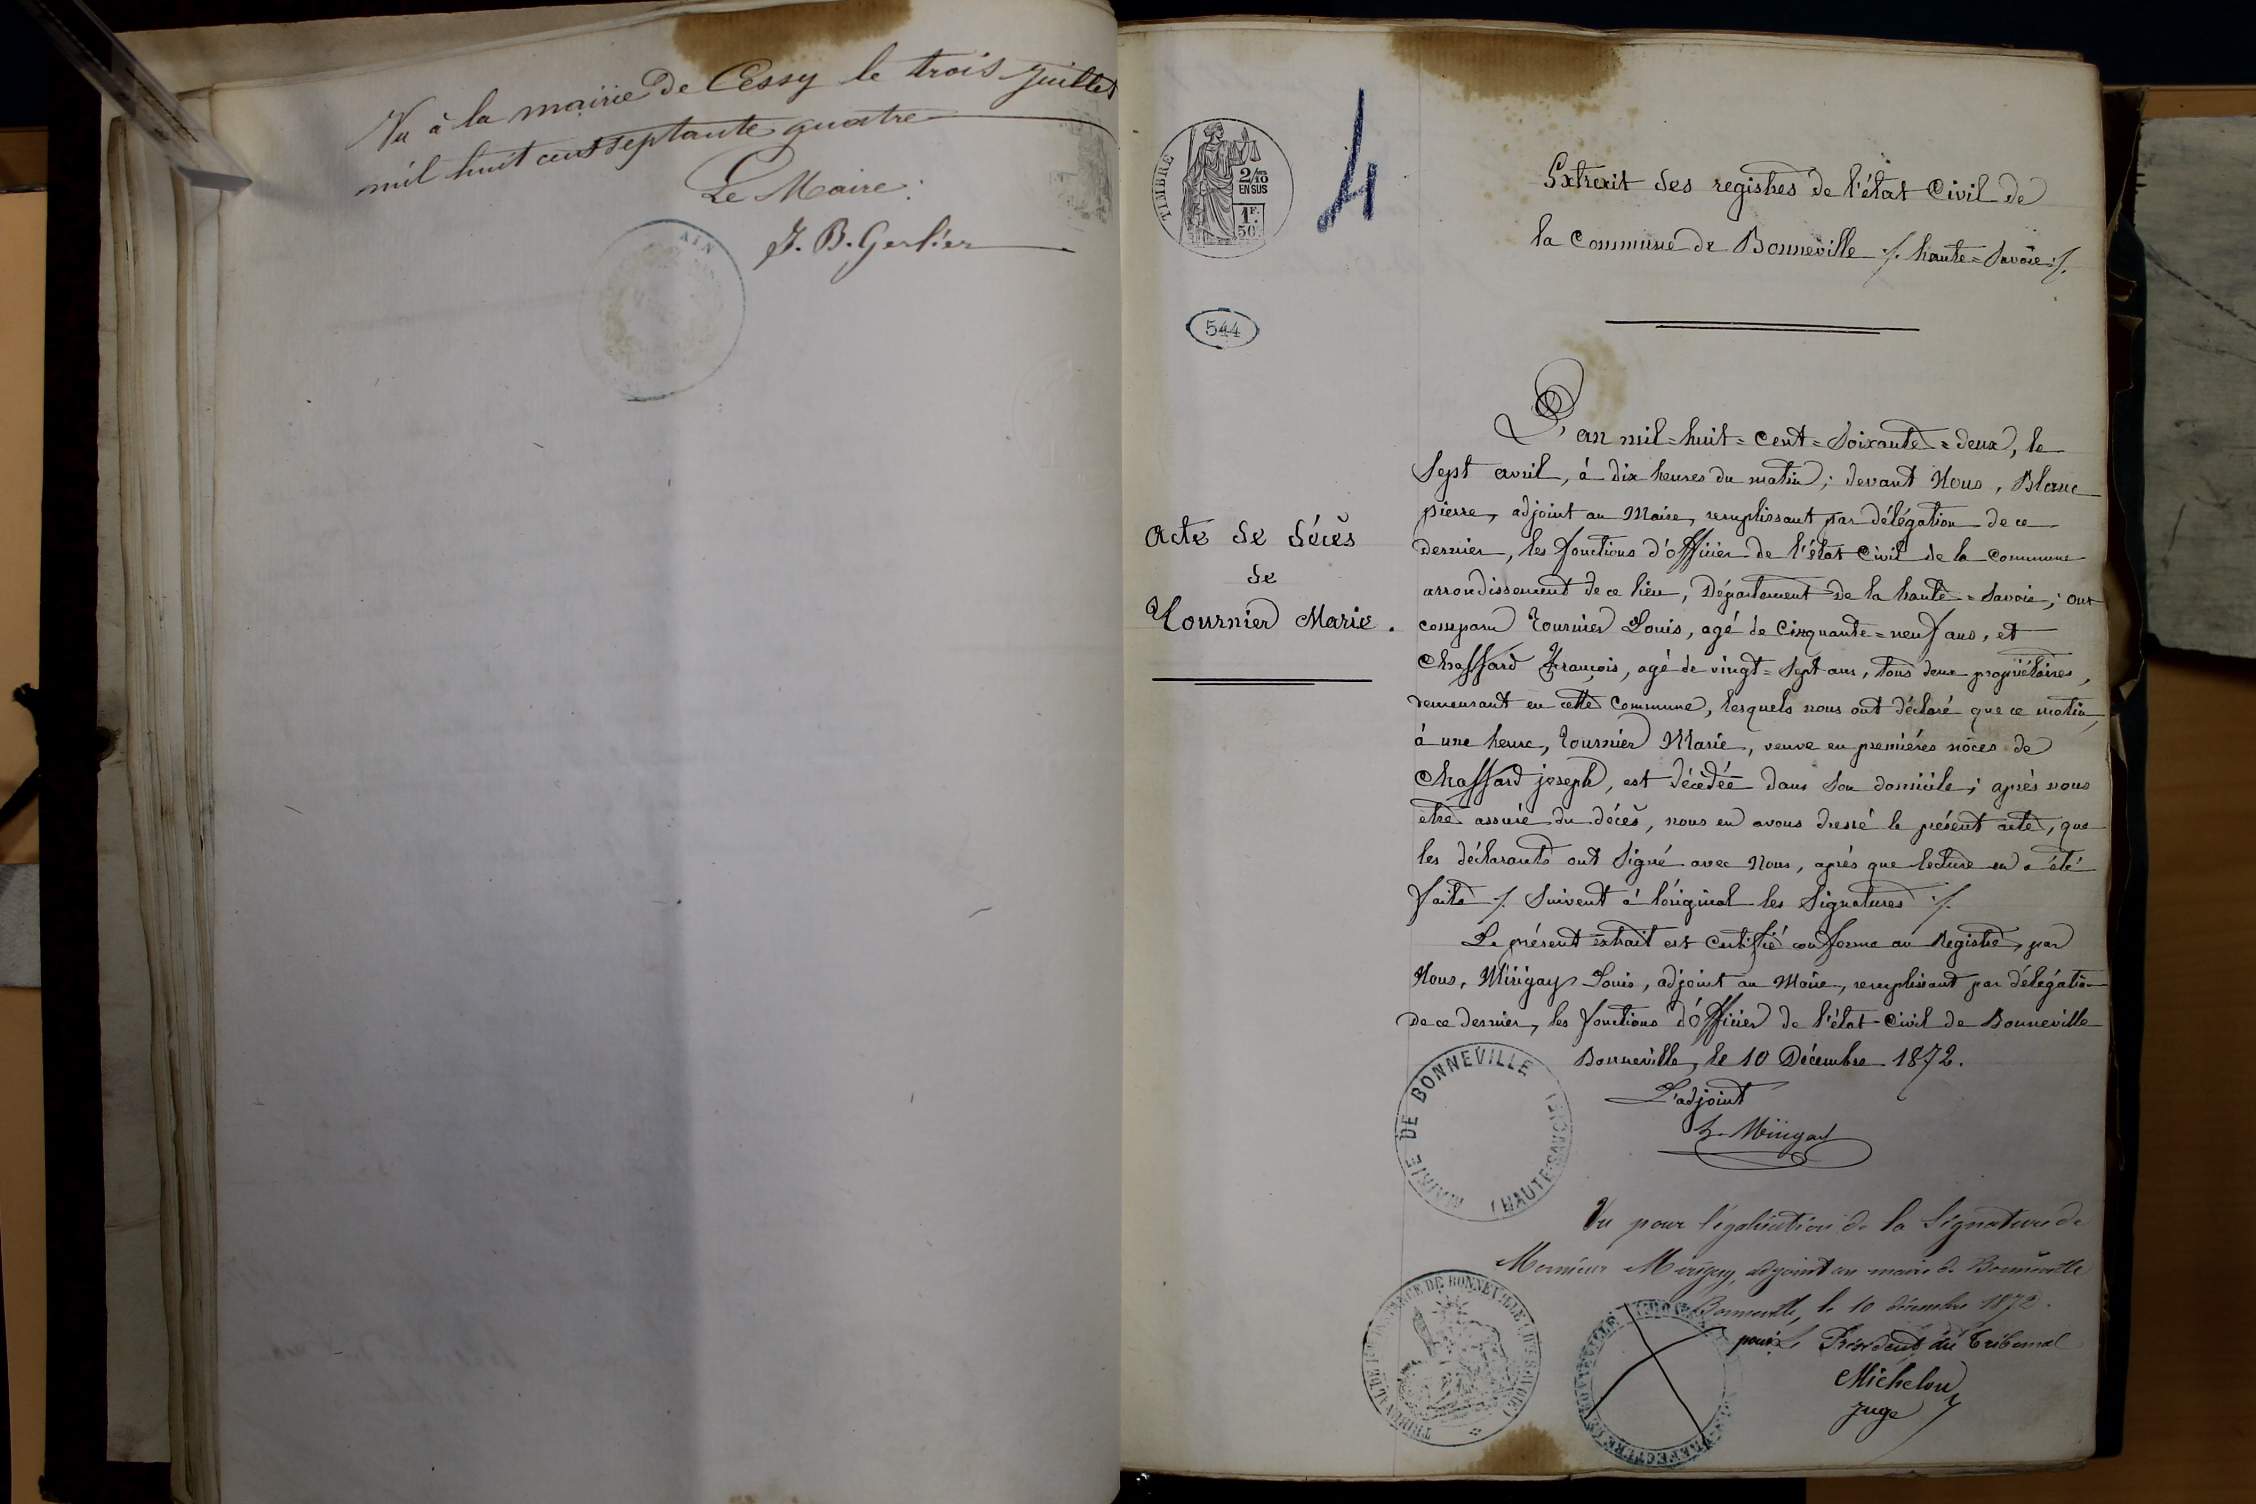 Vu à la mairie de Cessy le trois juillet
mil huit cent septante quatre
Le Maire:
J. B. Gerlier
AIN
TIMBRE
2/10
EN SUS
1F.
50c
4
544
Extrait des registres de l'état Civil de
la Commune de Bonneville ./. haute=Savoie ./.
Acte de décès
de
Tournier Marie.
L'an mil=huit=cent=Soixante=deux, le
Sept avril, à dix heures du matin; devant Nous, Blanc
pierre, adjoint au Maire, remplissant par délégation de ce
dernier, les fonctions d'officier de l'état Civil de la Commune
arrondissement de ce lieu, Département de la haute=Savoie; ont
comparu Tournier Louis, agé de Cinquante=neuf ans, et
Chaffard François, agé de vingt=Sept ans, tous deux propriétaires,
demeurant en cette Commune, lesquels nous ont déclaré que ce matin,
à une heure, Tournier Marie, veuve en premières nôces de
Chaffard joseph, est décédée dans Son domicile; après nous
etre assuré du décès, nous en avons dressé le présent acte, que
les déclarants ont Signé avec Nous, après que lecture en a été
faite ./. Suivent à l'original les Signatures ./.
Le présent extrait est Certifié conforme au Registre, par
Nous, Mirigay Louis, adjoint au Maire, remplissant par délégation
de ce dernier, les fonctions d'Officier de l'état-Civil de Bonneville
Bonneville, le 10 Décembre 1872.
L'adjoint
L. Mirigay
MAIRIE DE BONNEVILLE
(HAUTE-SAVOIE)
Vu pour légalisation de la Signature de
Monsieur Mirigay, adjoint au maire de Bonneville
Bonneville, le 10 décembre 1872.
pour le Président du Tribunal
Michelon
juge
TRIBUNAL DE 1RE INSTANCE DE BONNEVILLE (HTE SAVOIE)